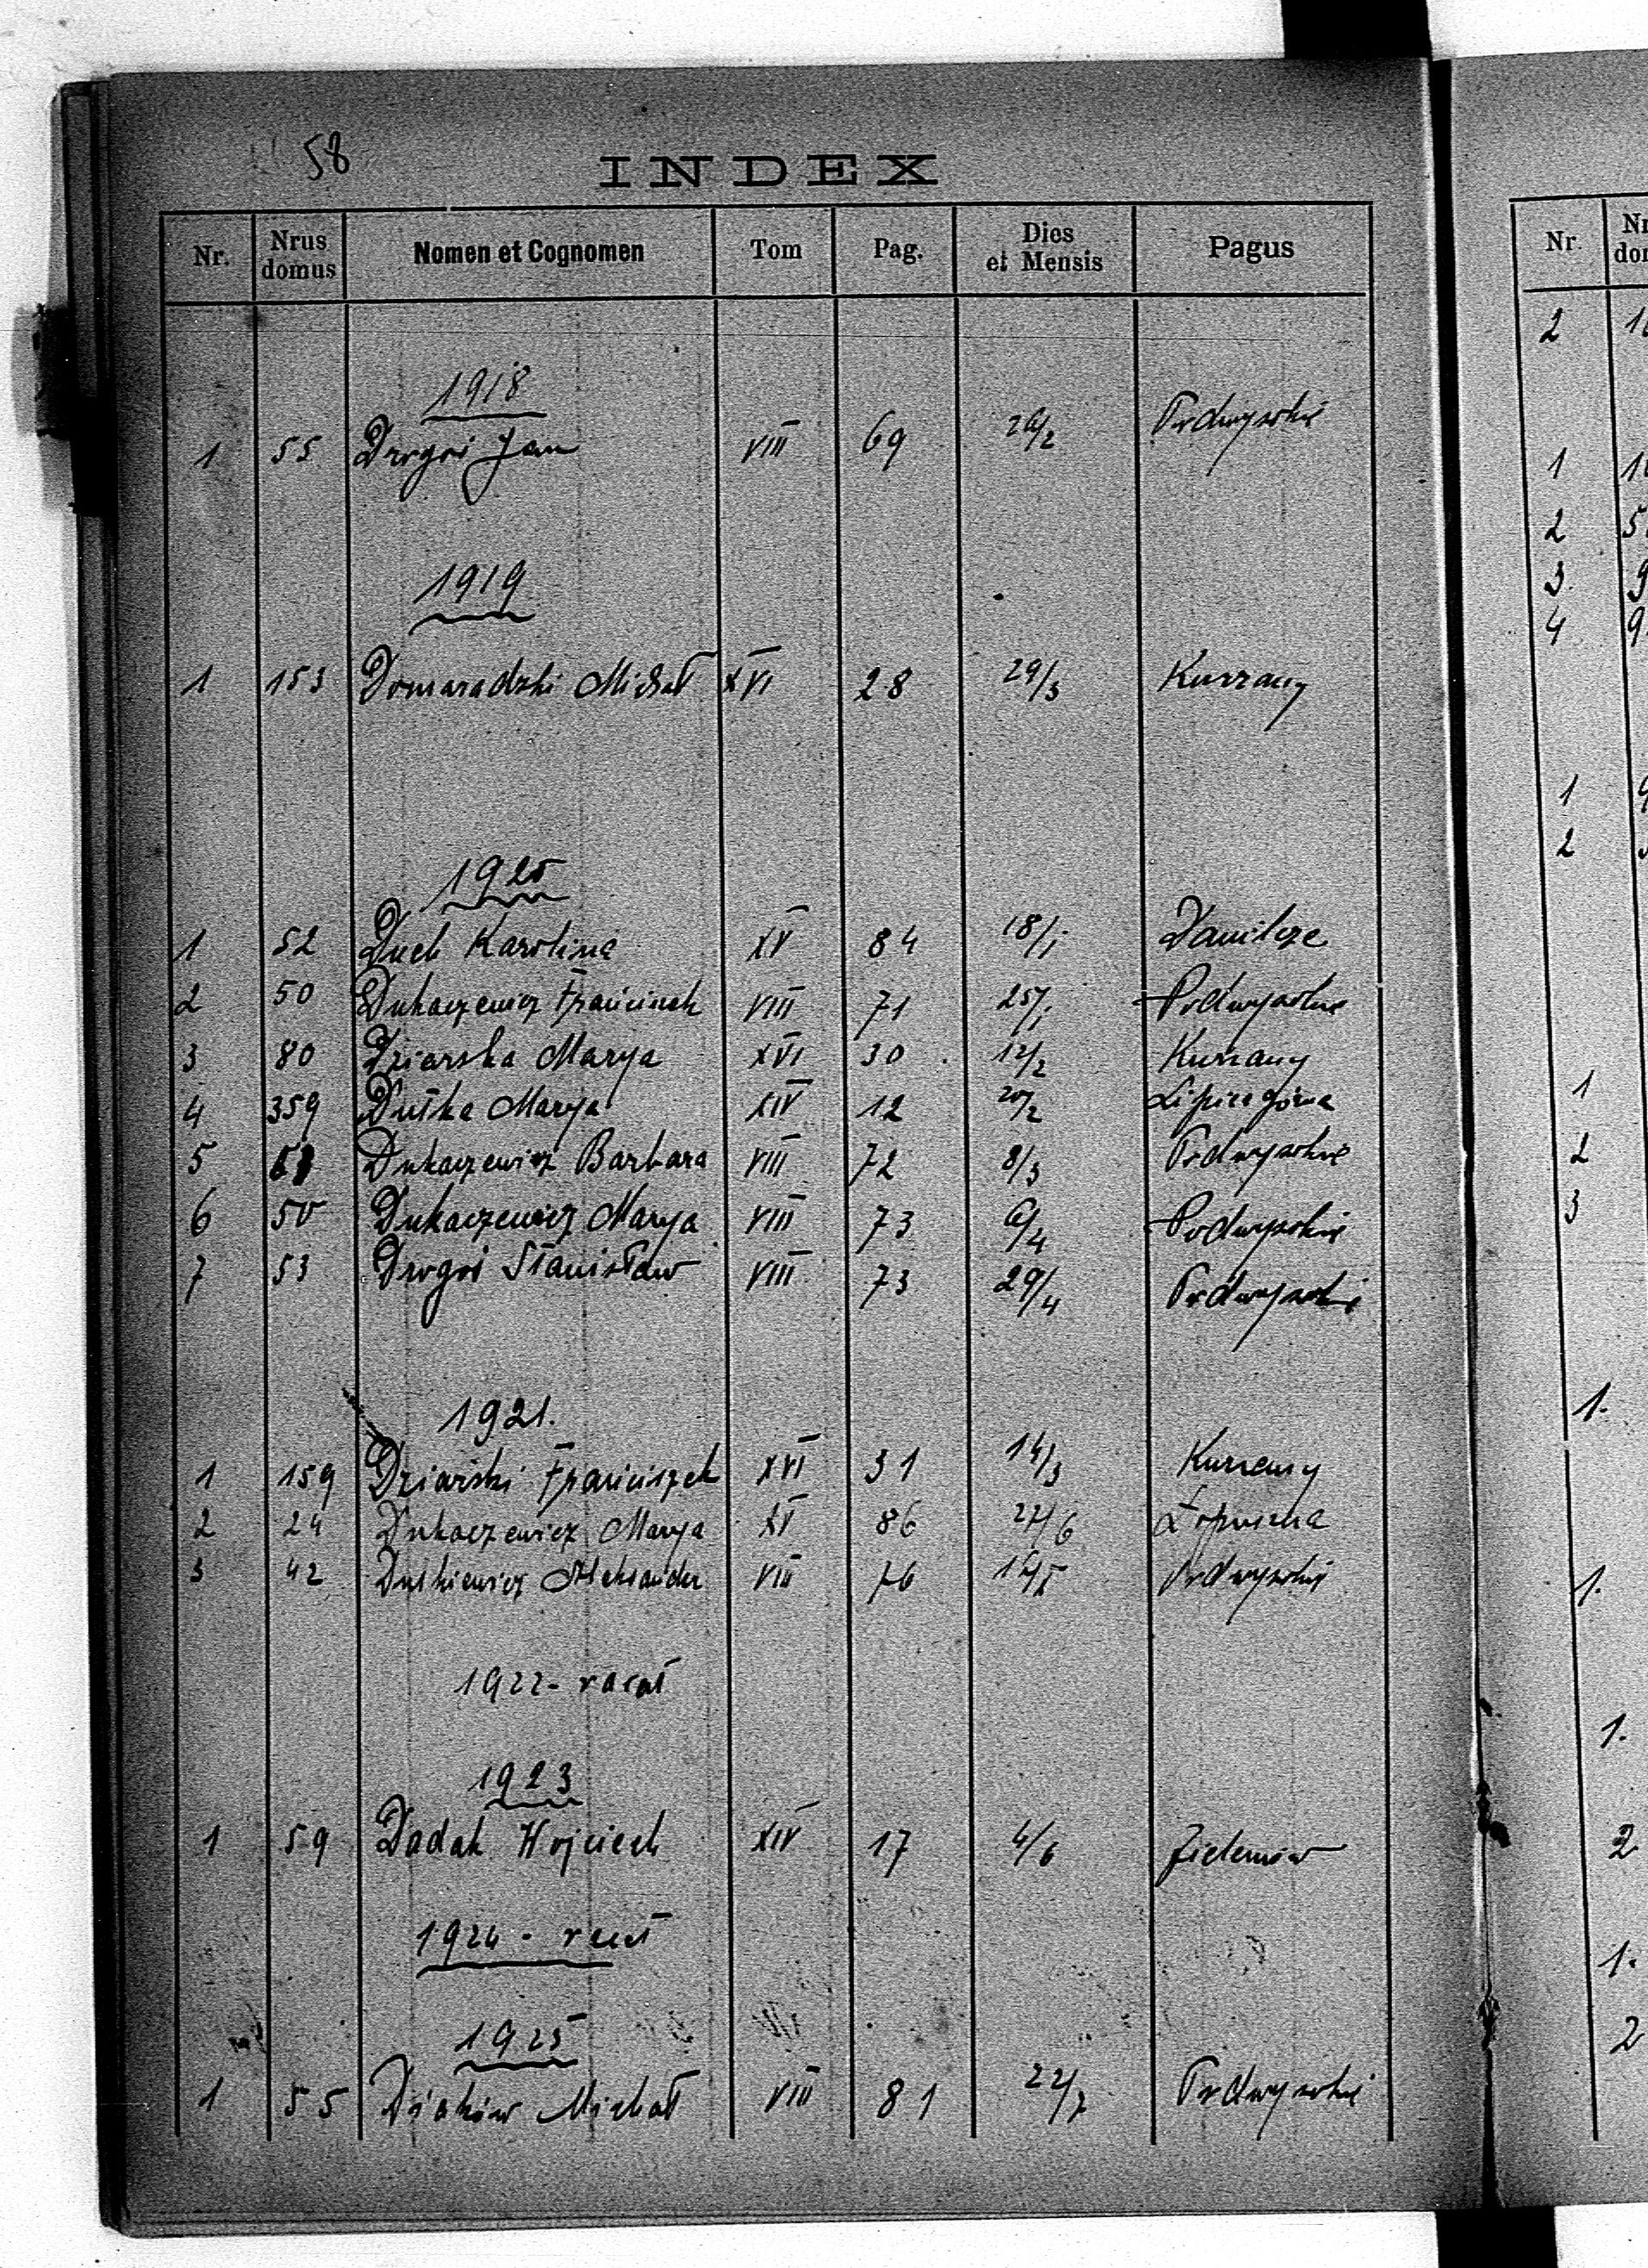 58
INDEX
Nr. Nrus domus Nomen et Cognomen Tom Pag. Dies et Mensis Pagus
1918
1 55 Drogoś Jan VIII 69 26/2 Podwysokie
1919
1 153 Domaradzki Michał XVI 28 29/3 Kurzany
1920
1 52 Duch Karolina XV 84 18/1 Danilcze
2 50 Dukaczewicz Franciszek VIII 71 25/1 Podwysokie
3 80 Dziarska Marya XVI 30 12/2 Kurzany
4 359 Dutka Marya XIV 12 20/2 Lipica górna
5 Dukaczewicz Barbara VIII 72 8/3 Podwysokie
6 50 Dukaczewicz Marya VIII 73 6/4 Podwysokie
7 53 Drogoś Stanisław VIII 73 29/4 Podwysokie
1921.
1 159 Dziarski Franciszek XVI 31 14/3 Kurzany
2 24 Dukaczewicz Marya XV 86 Łopuszna
3 42 Dutkiewicz Aleksander VIII 76 Podwysokie
1922 - vacat
1923
1 59 Dadak Wojciech XIV 17 4/6 Zielenów
1924 - vacat
1925
1 55 Dziaków Michał VIII 81 22/7 Podwysokie
Nr.
2
1
2
3.
4
1
2
1
2
3
1.
1.
1.
2
1.
2